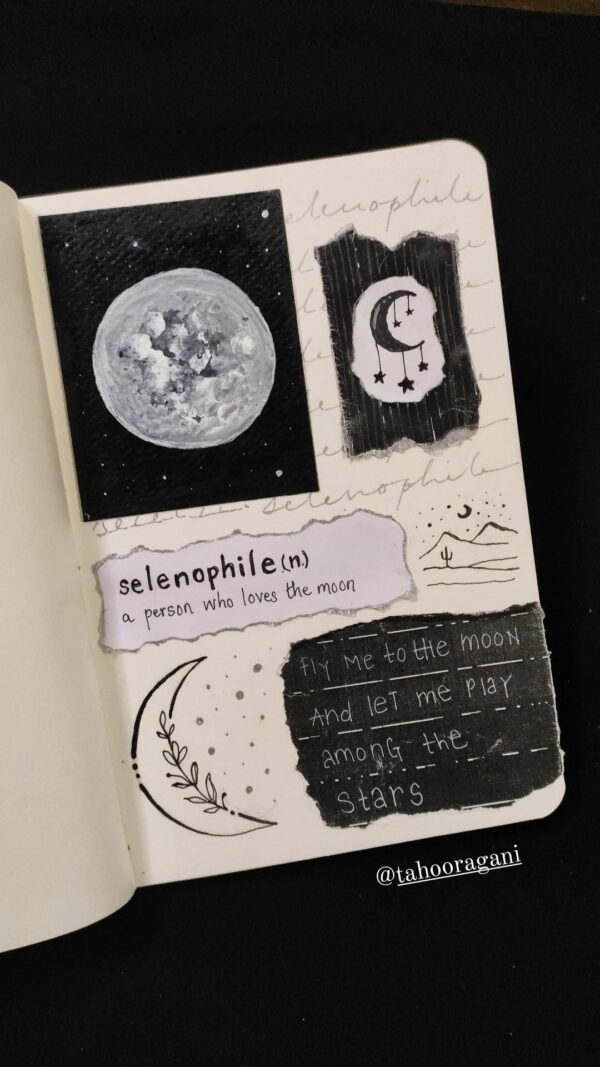 selenophile
selenophile
selenophile (n.)
a person who loves the moon
fly me to the moon
And leT me Play
amonG the
stars
@tahooragani